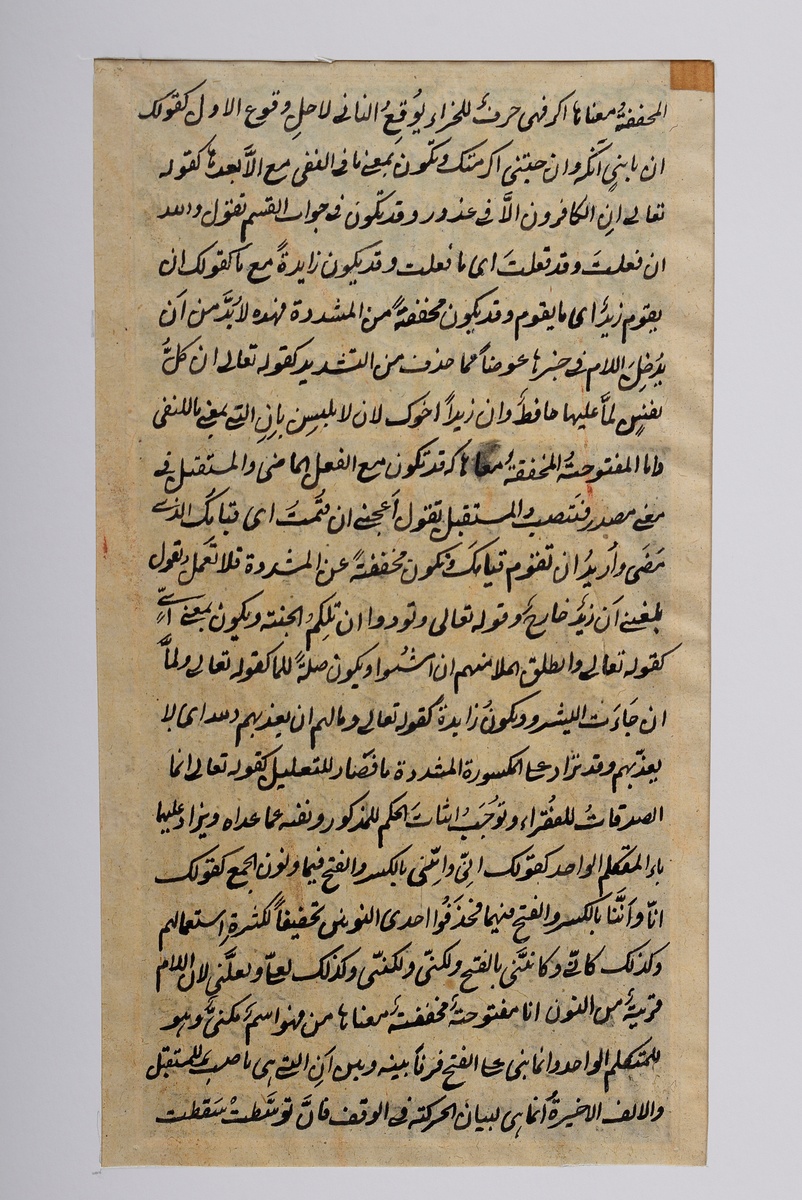 المخففةُ معناها اكر فهى حرفٌ للجزاء يُوقِعُ الثانى لاجلِ وقوع الاول كقولك
ان ياتنى آتكه وان جئتنى اكرمتك وتكون بمعنى ما فى النفى مع الاَّ بعدها كقوله
تعالى اِنِ الكافرون الاَّ فى غرور وقد تكون فى جواب القسم تقول والله
ان فعلتَ وقد فعلتَ اى ما فعلت وقد يكون زايدةً مع ما كقولك ان
يقوم زيدٌ اى ما يقوم وقد يكون مخففةً من المشددة فهذه لابُدَّ من اَن
يدُخِلَ اللام فى خبرها عوضاً مما حذف من التشديد كقوله تعالى ان كلُّ
نفسٍ لمَّا عليها حافظٌ وان زيداً اخوك لان لا يلبس بِاِنِ التى بمعنى ما للنفى
واما المفتوحةُ المخففةُ معناها كه قد تكون مع الفعل الماضى والمستقبل فى
معنى مصدر فتنصب المستقبل تقول اَعجبنى ان قُمتَ اى قيامك الذى
مَضَى واُريدُ ان تقوم قيامَكَ وتكون مخففةً عن المشددة فلا تعمل وتقول
بلغنى اَن زيدٌ خارجٌ وقوله تعالى ونودوا ان تلكمُ الجنة ويكون بمعنى اى
كقوله تعالى وانطلق الملا منهم ان امشُوا ويكون صلةً للما كقوله تعالى ولمَّا
ان جَاءَت البشر ويكونُ زايدةً كقوله تعالى ومالهم ان يعذبهم الله اى لا
يعذّبهم وقد تزاد على المكسورة المشددة ما فصار للتعليل كقوله تعالى انما
الصدقاتُ للفقراء وتوجَبُ اثبات الحكم للمذكور ونفيه عما عداه ويزاد عليها
ياء المتكلم الواحد كقولك انِّى واِنَّنى بالكسر والفتح فيهما ونون الجمع كقولك
انّا واَنَّنَا بالكسر والفتح فيهما فحذَفُوا احدى النونين تخفيفاً لكثرة استعمالهم
وكذلك كانّى وكانّنى بالفتح ولكنّى ولكننّى وكذلك لعلّى ولعلَّنى لان اللام
قريبةٌ من النون انا مفتوحةً مخففةً معناها من فهو اسمٌ مكنىٌّ وهو
للمتكلم الواحد وانما بنى على الفتح فرقاً بينه وبين اَنِ التى هى ناصب للمستقبل
والالف الاخيرةُ انما هى لبيان الحركة فى الوقف فانَّ توسَّطَتْ سَقطت